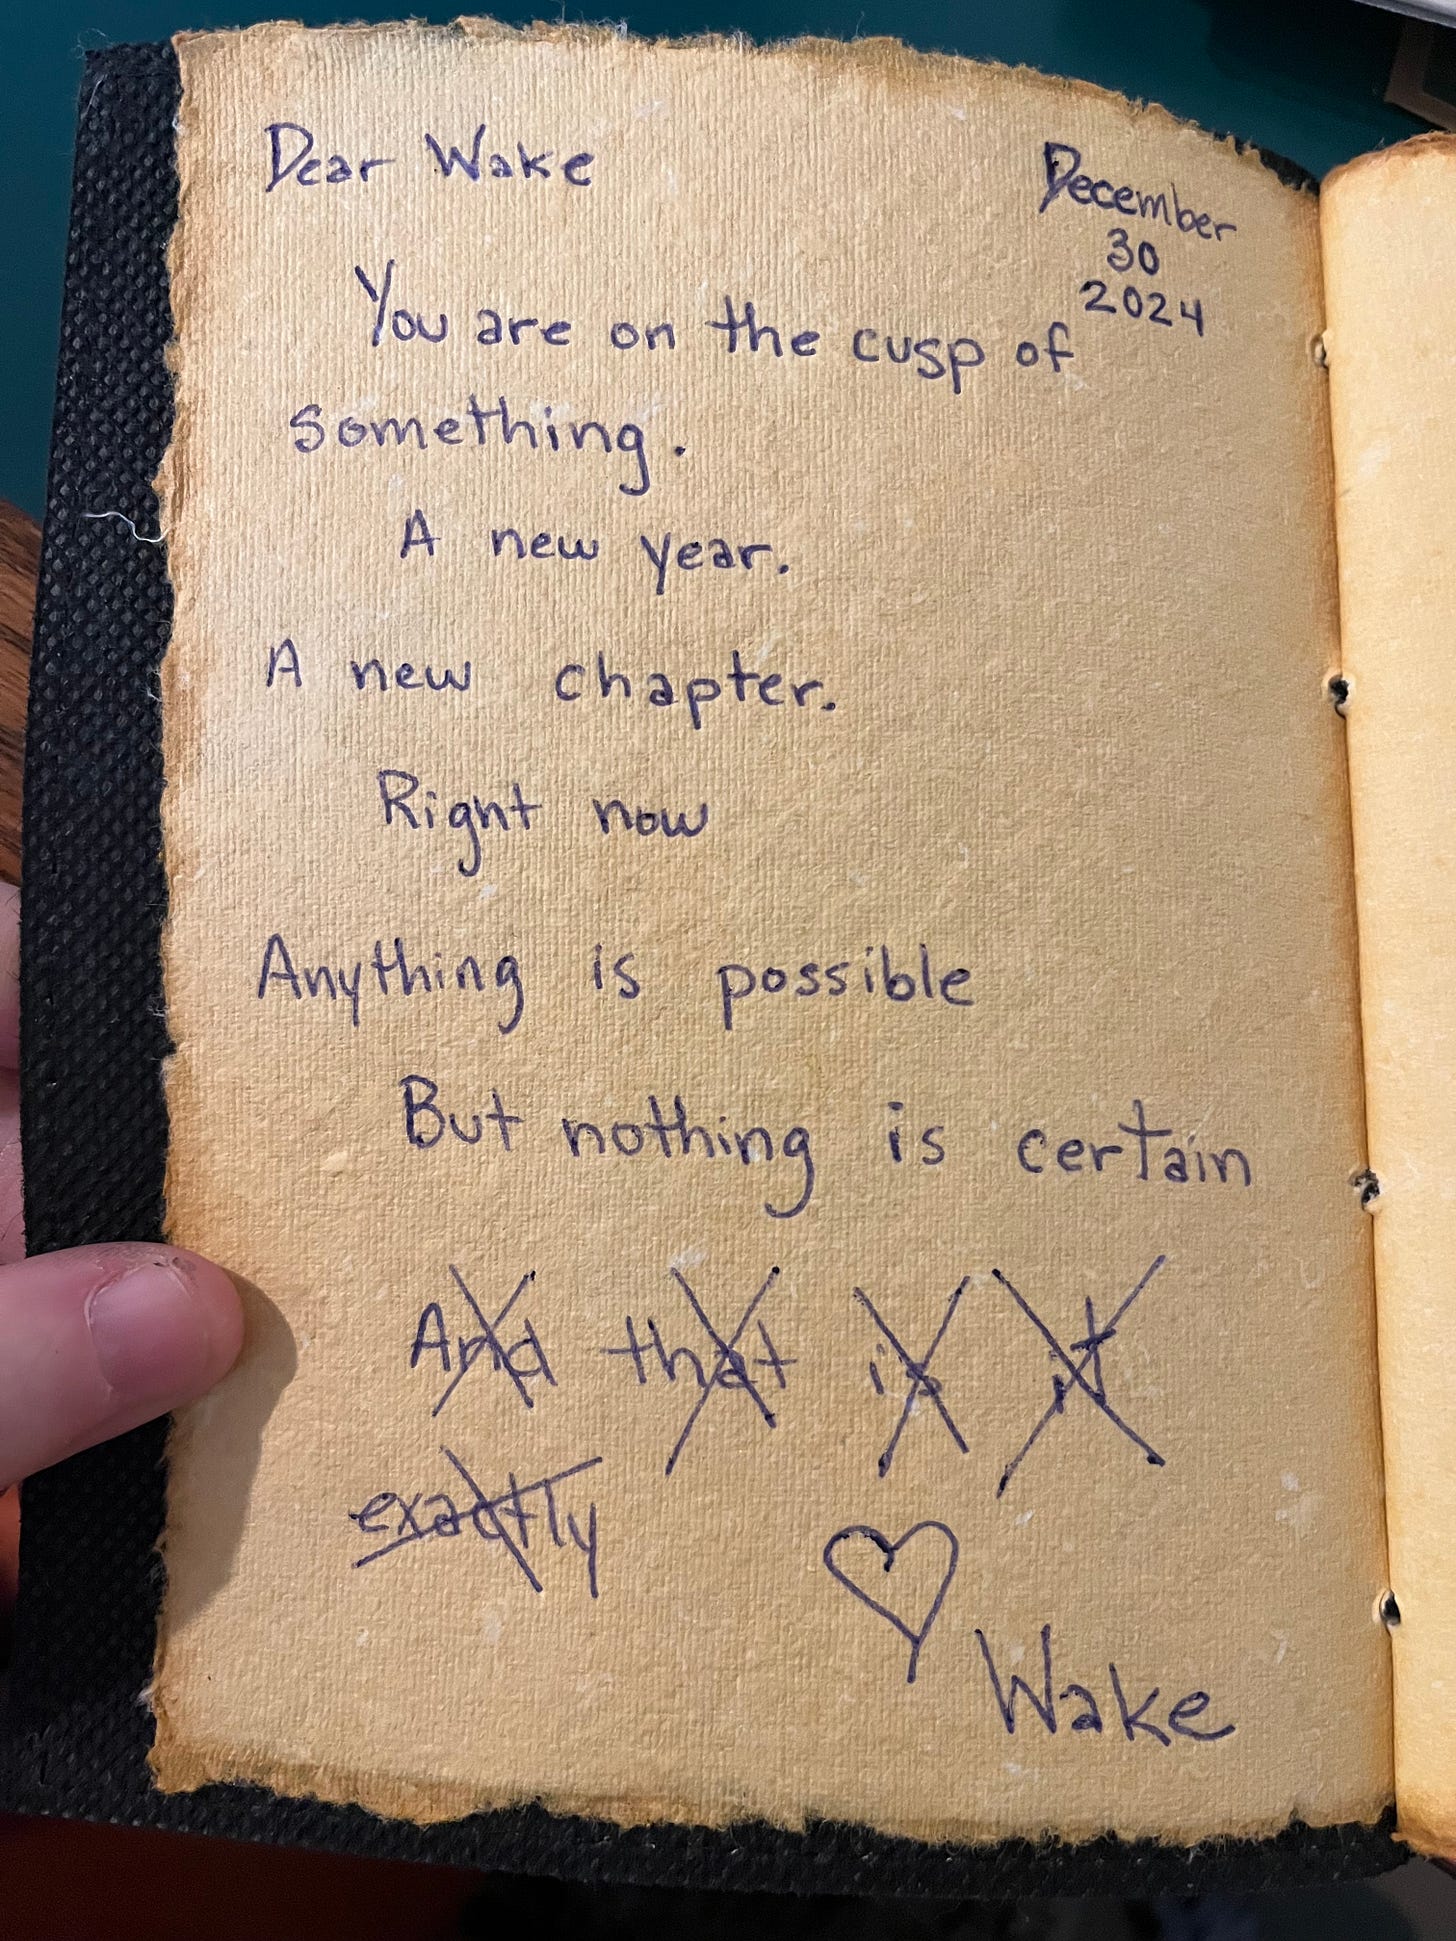 Dear Wake
December
30
2024
You are on the cusp of
something.
A new year.
A new chapter.
Right now
Anything is possible
But nothing is certain
And that is it
exactly
Wake